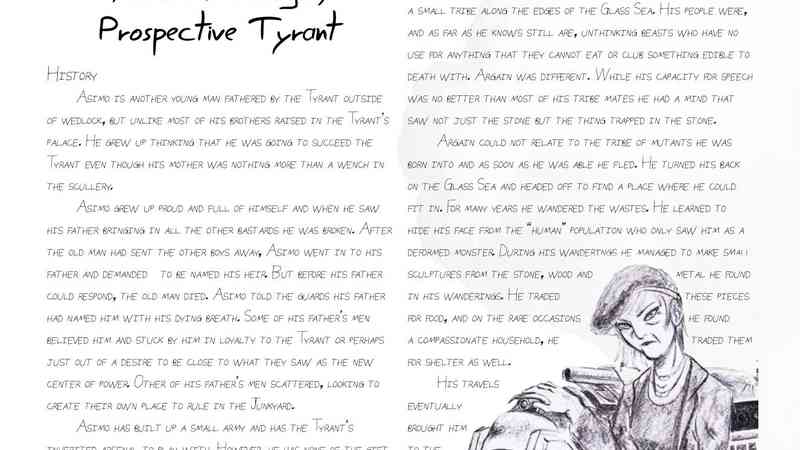 Prospective Tyrant
History
Asimo is another young man fathered by the Tyrant outside
of wedlock, but unlike most of his brothers raised in the Tyrant's
palace. He grew up thinking that he was going to succeed the
Tyrant even though his mother was nothing more than a wench in
the scullery.
Asimo grew up proud and full of himself and when he saw
his father bringing in all the other bastards he was broken. After
the old man had sent the other boys away, Asimo went in to his
father and demanded to be named his heir. But before his father
could respond, the old man died. Asimo told the guards his father
had named him with his dying breath. Some of his father's men
believed him and stuck by him in loyalty to the Tyrant or perhaps
just out of a desire to be close to what they saw as the new
center of power. Other of his father's men scattered, looking to
create their own place to rule in the Junkyard.
Asimo has built up a small army and has the Tyrant's
a small tribe along the edges of the Glass Sea. His people were,
and as far as he knows still are, unthinking beasts who have no
use for anything that they cannot eat or club something edible to
death with. Argain was different. While his capacity for speech
was no better than most of his tribe mates he had a mind that
saw not just the stone but the thing trapped in the stone.
Argain could not relate to the tribe of mutants he was
born into and as soon as he was able he fled. He turned his back
on the Glass Sea and headed off to find a place where he could
fit in. For many years he wandered the wastes. He learned to
hide his face from the "human" population who only saw him as a
deformed monster. During his wanderings he managed to make small
sculptures from the stone, wood and metal he found
in his wanderings. He traded these pieces
for food, and on the rare occasions he found
a compassionate household, he traded them
for shelter as well.
His travels
eventually
brought him
to the